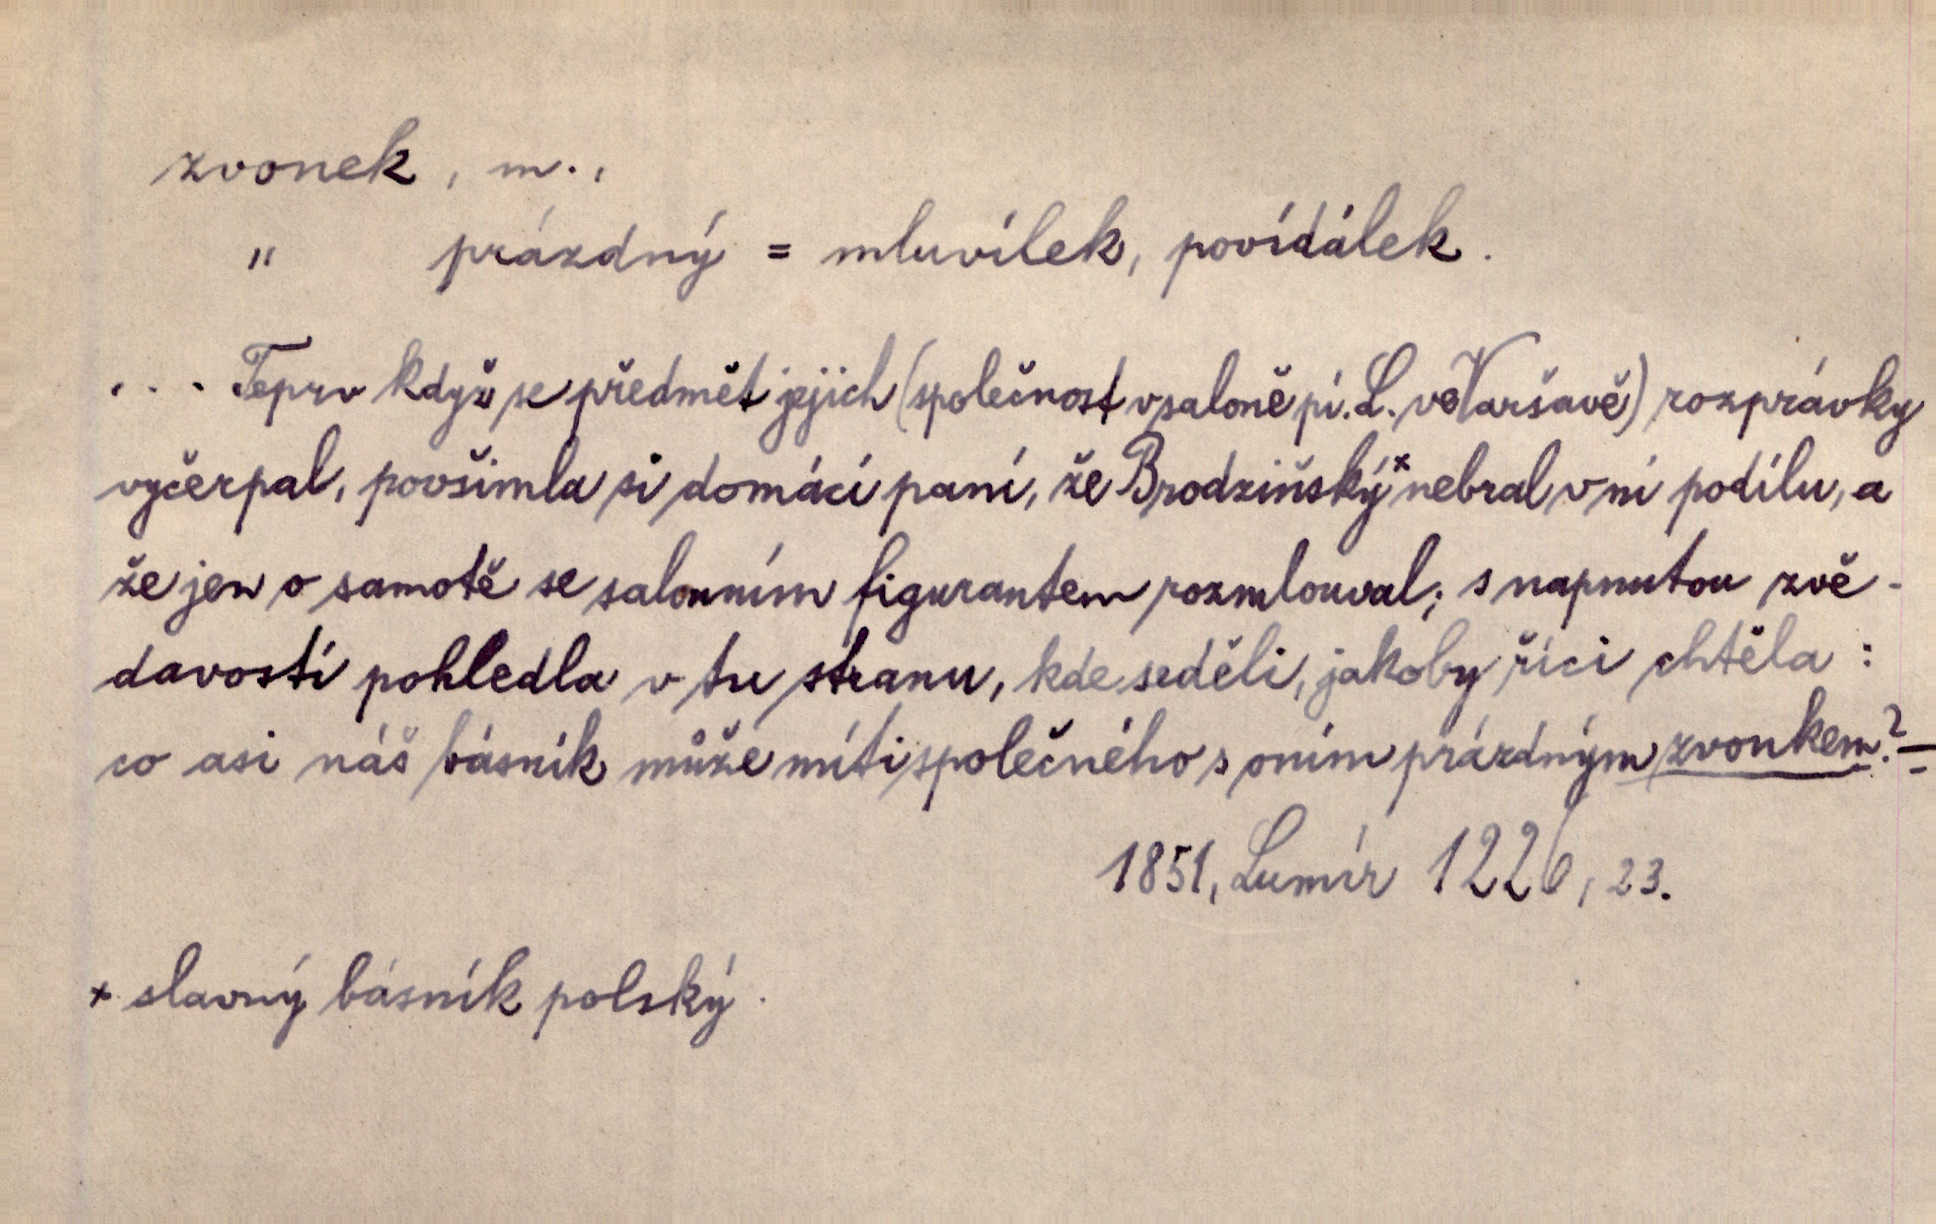 zvonek, m.,
" prázdný = mluvílek, povídálek.
... Teprv když se předmět jejich (společnost v saloně pí. L. ve Varšavě) rozprávky
vyčerpal, povšimla si domácí paní, že Brodziňský* nebral v ní podílu, a
že jen o samotě se salonním figurantem rozmlouval; s napnutou zvě-
davostí pohledla v tu stranu, kde seděli, jakoby říci chtěla:
co asi náš básník může míti společného s oním prázdným zvonkem? –
1851, Lumír 1226, 23.
* slavný básník polský.